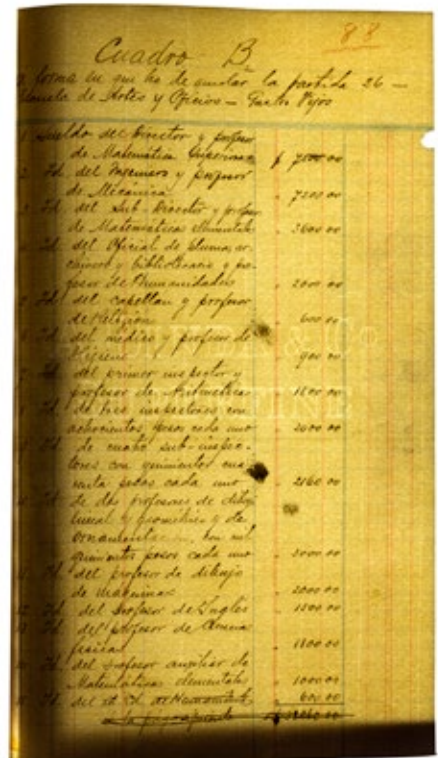 88
Cuadro B
forma en que ha de quedar la partida 26 —
Escuela de Artes y Oficios — Gastos Fijos
1 Sueldo del Director y profesor
de Matemática Superiores $ 7200 00
2 Id. del Ingeniero y profesor
de Mecánica " 7200 00
3 Id. del Sub-Director y profesor
de Matematicas elementales " 3600 00
Id. del Oficial de pluma, ar-
chivero y bibliotecario y pro-
fesor de Humanidades " 2000 00
Id. del capellan y profesor
de Religion " 600 00
Id. del médico y profesor de
Higiene " 900 00
Id. del primer inspector y
profesor de Aritmética " 1800 00
Id. de tres inspectores con
ochocientos pesos cada uno " 2400 00
Id. de cuatro sub-inspec-
tores con quinientos cua-
renta pesos cada uno " 2160 00
Id. de dos profesores de dibujo
lineal y geométrico y de
ornamentacion, con mil
quinientos pesos cada uno " 3000 00
Id. del profesor de dibujo
de maquinas " 2000 00
Id. del Profesor de Inglés " 1500 00
Id. del profesor de Ciencias
físicas " 1800 00
Id. del profesor auxiliar de
Matemáticas elementales " 1000 00
Id. del id. id. de 600 00